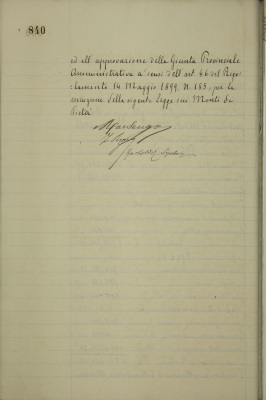 840
ed all' approvazione della Giunta Provinciale
Amministrativa a' sensi dell' art. 66 del Rego:
:lamento 14 Maggio 1899, N. 185, per la
esecuzione della vigente legge sui Monti di
Pietà